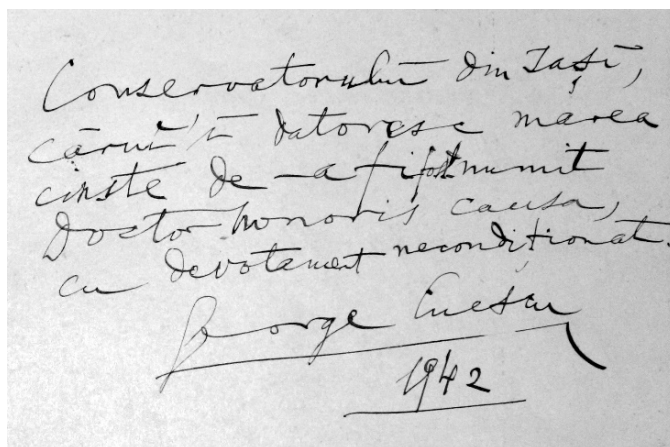 Conservatorului din Iași,
căruia îi datoresc marea
cinste de a fi fost numit
Doctor honoris causa,
cu devotament necondiționat.
George Enescu
1942